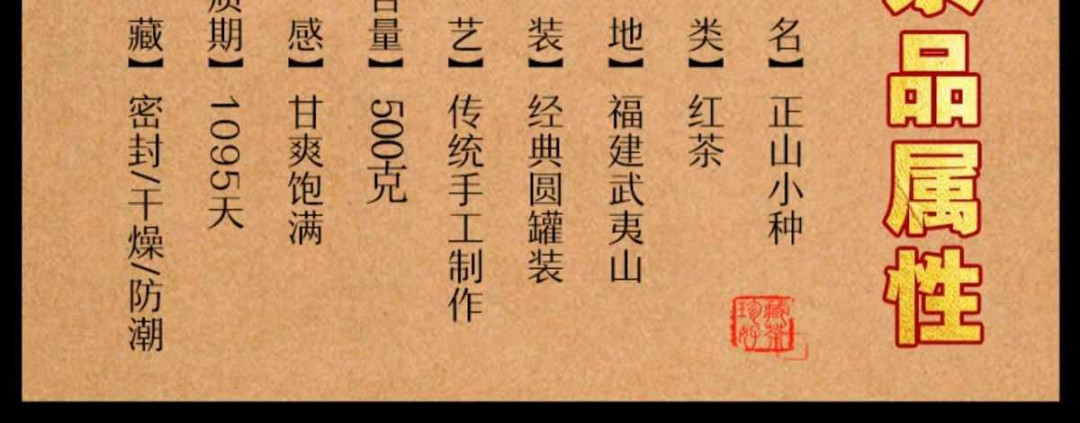 品属性
名】正山小种
类】红茶
地】福建武夷山
装】经典圆罐装
艺】传统手工制作
量】500克
感】甘爽饱满
期】1095天
藏】密封/干燥/防潮
藏茶
珍好